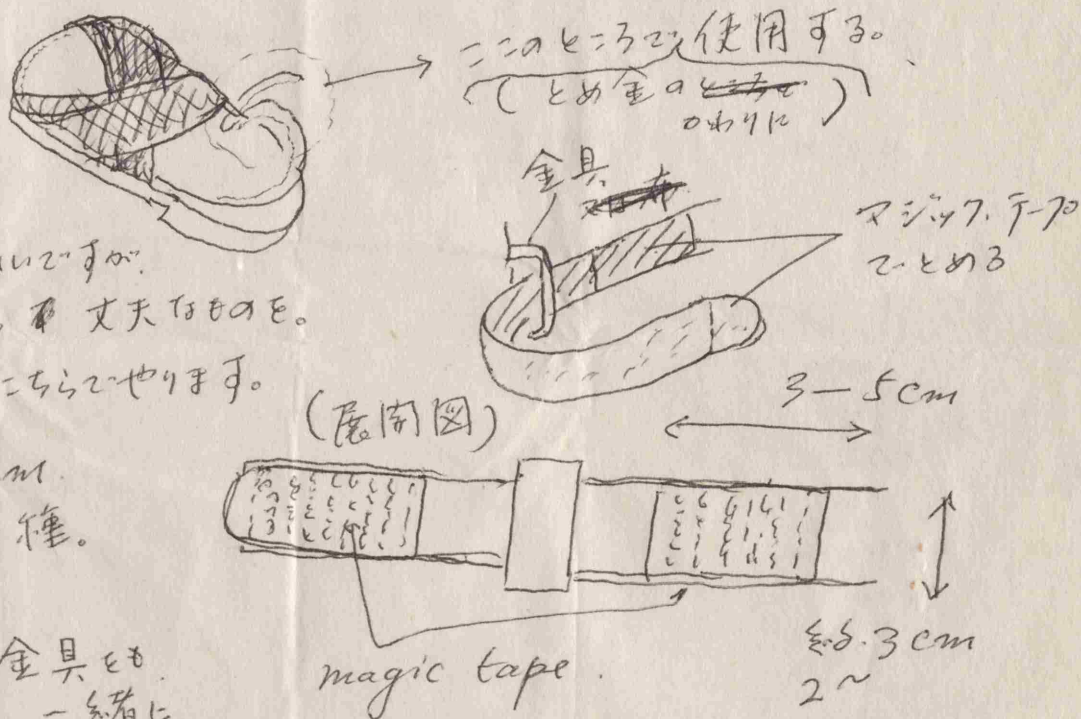 ここのところで、使用する。
(とめ金のところで
かわりに)
金具
又は布
マジックテープ
でとめる
いですが、
丈夫なものを。
こちらでやります。
3－5cm
(展開図)
m.
種。
金具とも
一緒に
magic tape.
約.3cm
2～